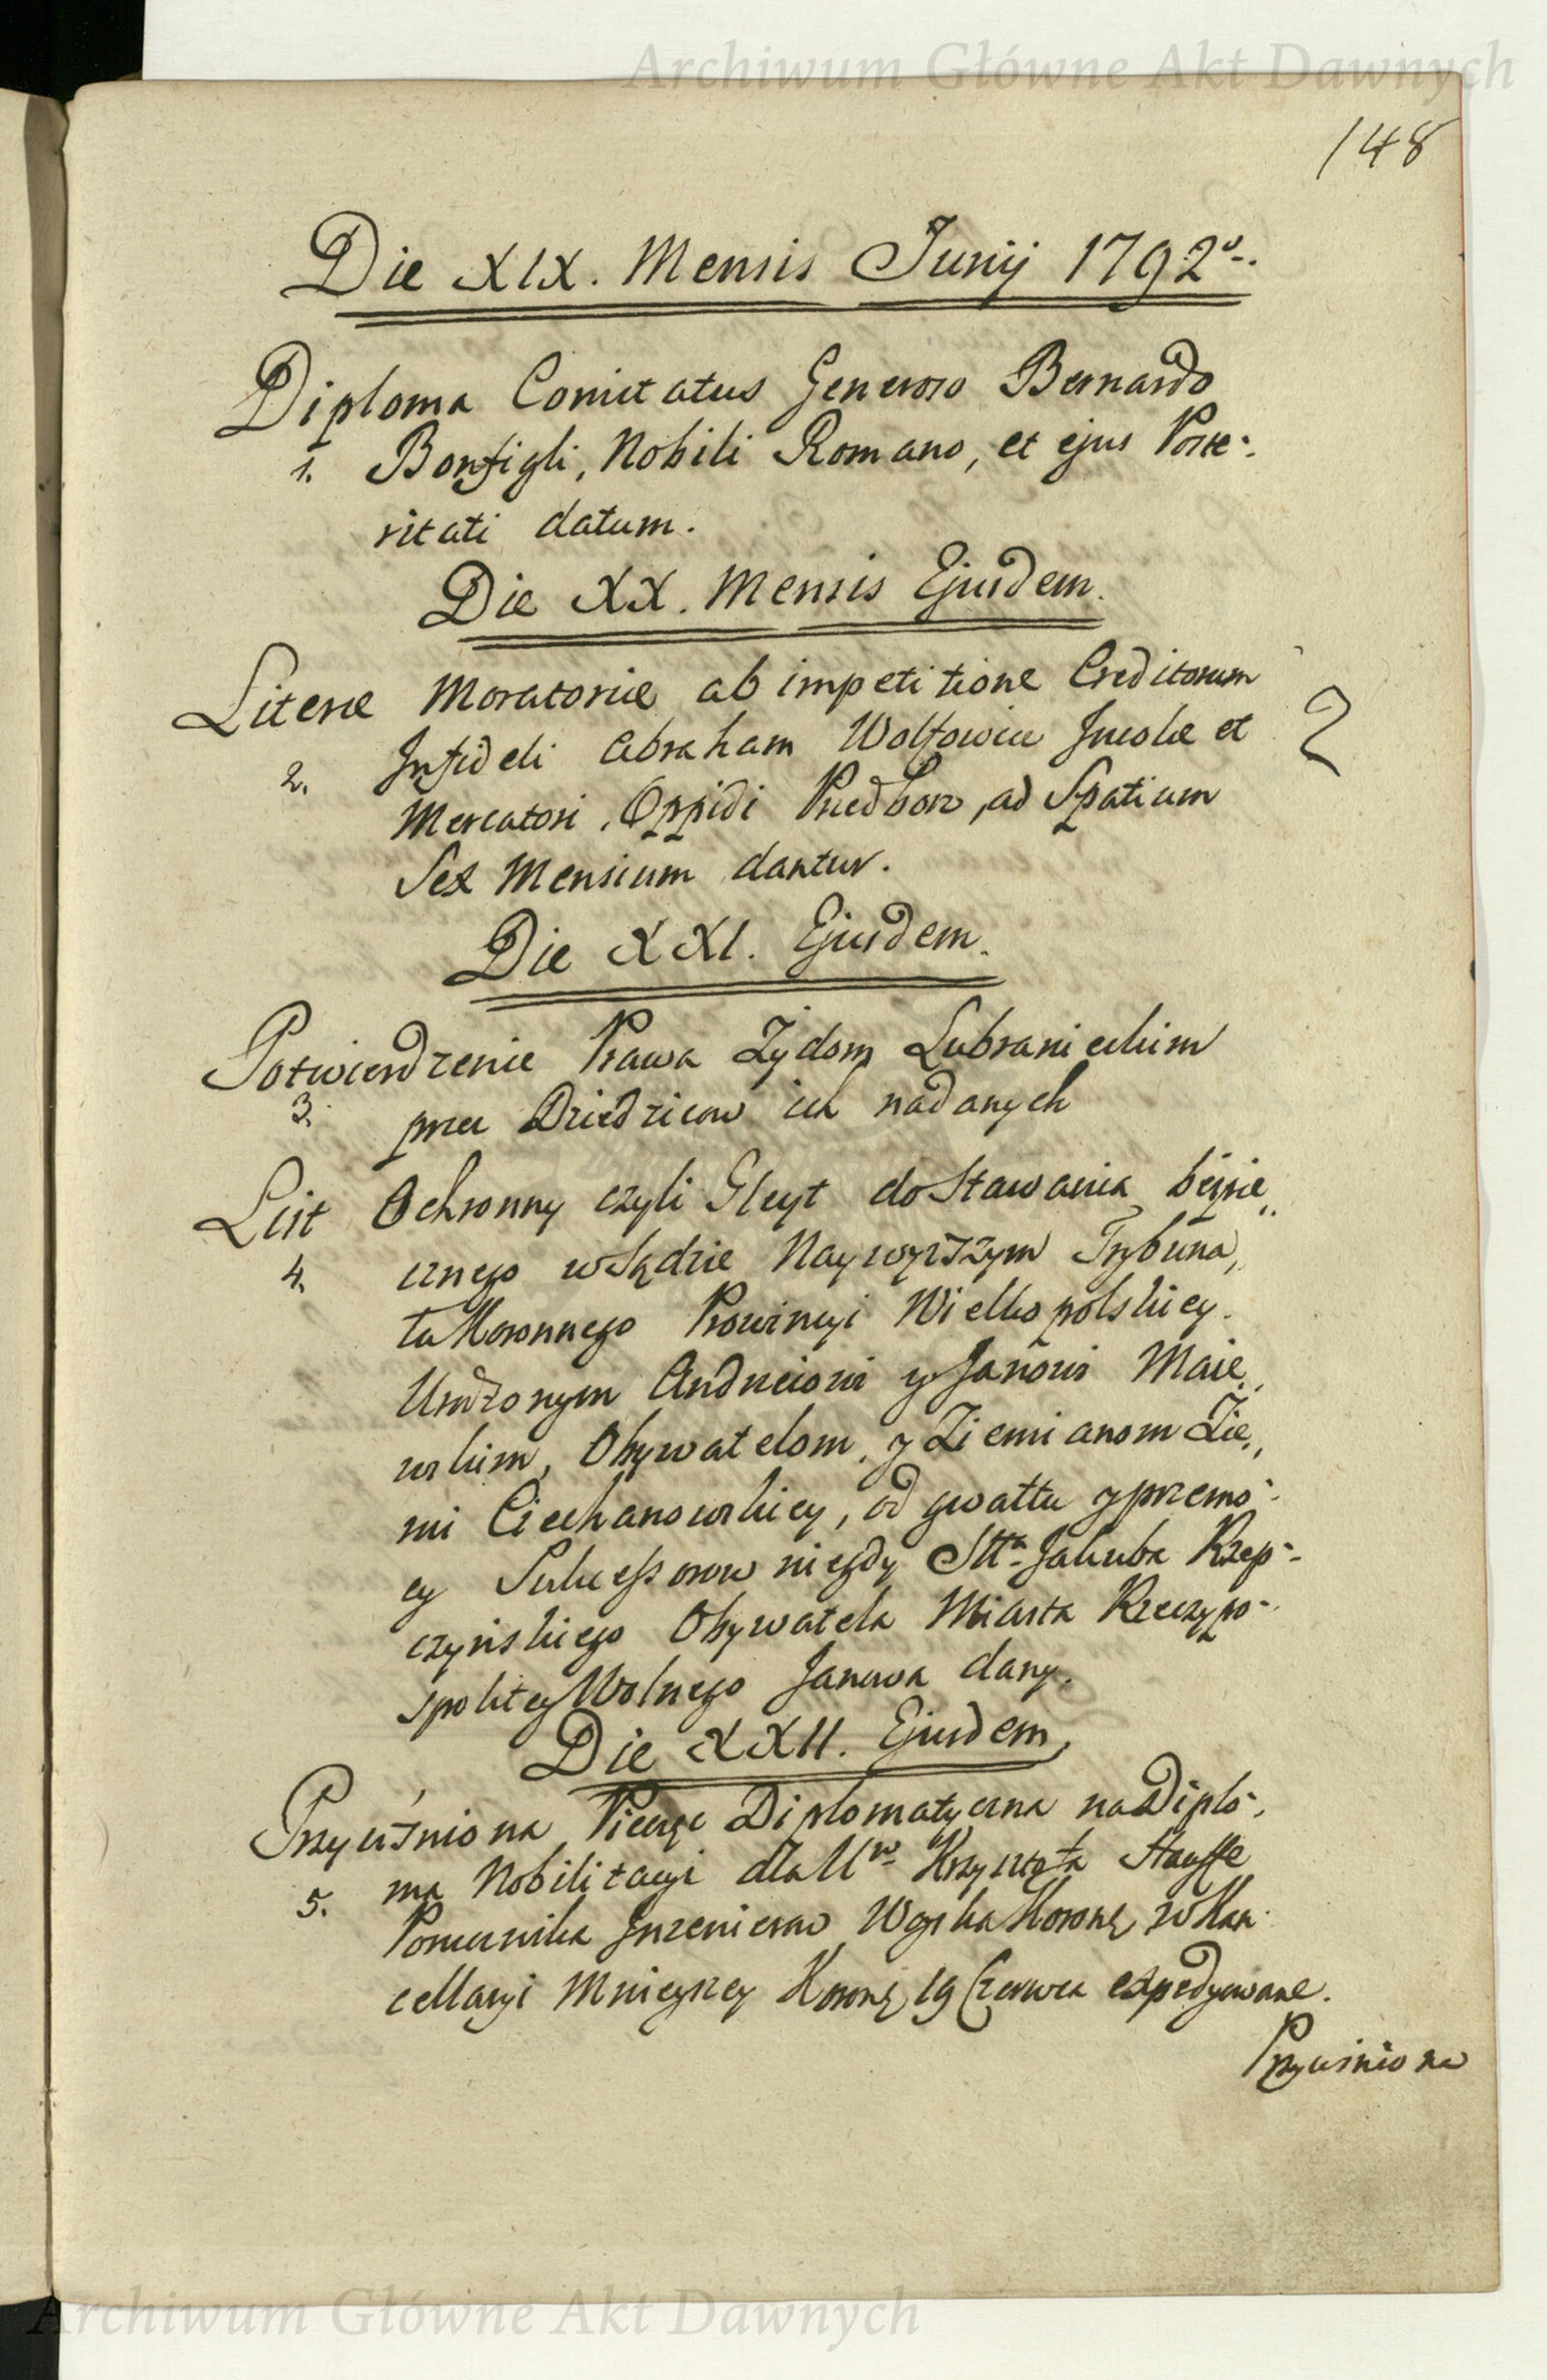 Archiwum Główne Akt Dawnych
148
Die XIX. Mensis Junij 1792o.
Diploma Comitatus Generoso Bernardo
1. Bonfigli, Nobili Romano, et ejus Poste-
ritati datum.
Die XX. Mensis Ejusdem.
Literæ Moratoriæ ab impetitione Creditorum
2
2. Infideli Abraham Wolfowicz Incolæ et
Mercatori, Oppidi Przedborz, ad Spatium
Sex Mensium dantur.
Die XXI. Ejusdem.
Potwierdzenie Prawa Żydom Lubranieckim
3. przez Dziedzicow ich nadanych
List Ochronny czyli Gleyt do Stawania bezpie„
4. cznego w Sądzie Naywyższym Trybuna„
łu Koronnego Prowincyi Wielkopolskiey.
Urodzonym Andrzeiowi y Janowi Maie„
wskim, Obywatelom, y Ziemianom Zie„
mi Ciechanowskiey, od gwałtu y przemo-
cy Sukcessorow niegdy Stta Jakuba Rzep-
czyńskiego Obywatela Miasta Rzeczypo-
spolitey Wolnego Janowa dany.
Die XXII. Ejusdem,
Przyciśniona Pieczęć Diplomatyczna na Diplo-
5. ma Nobilitacyi dla Uro Krzysztofa Stauffe
Porucznika Inzenierow Woyska Koronẽ, w Kan-
cellaryi Mnieyszey Koronẽ, 19 Czerwca expedyowane.
Przyciśniona
Archiwum Główne Akt Dawnych